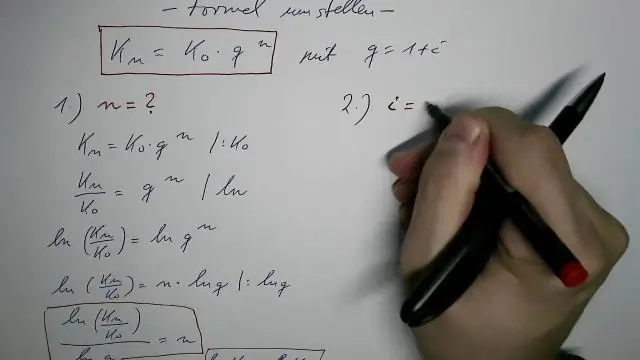 - Formel umstellen -
Kn = K0 · q^n mit q = 1 + i
1.) n = ?
Kn = K0 · q^n | : K0
Kn/K0 = q^n | ln
ln (Kn/K0) = ln q^n
ln (Kn/K0) = n · ln q | : ln q
ln (Kn/K0) / ln q = n
2.) i =